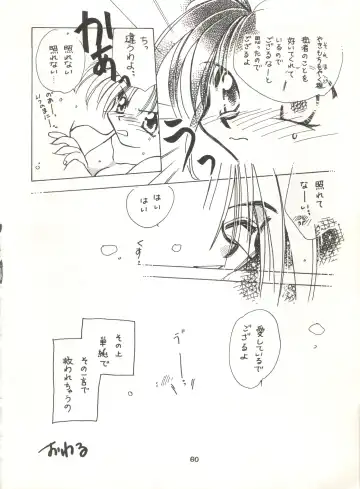 そんな
やきもちをやく程
拙者のことを
好いてくれて
いるので
ござるなーと
思ったので
ござるよ
ちっ
違うわよ…
かあっ
照れない
照れない
のあー!
うっ
照れて
なーい!
はい
はい
くす
愛しているで
ござるよ
じーーん
その上
単純で
その一言で
救われちゃうの
おわる
60